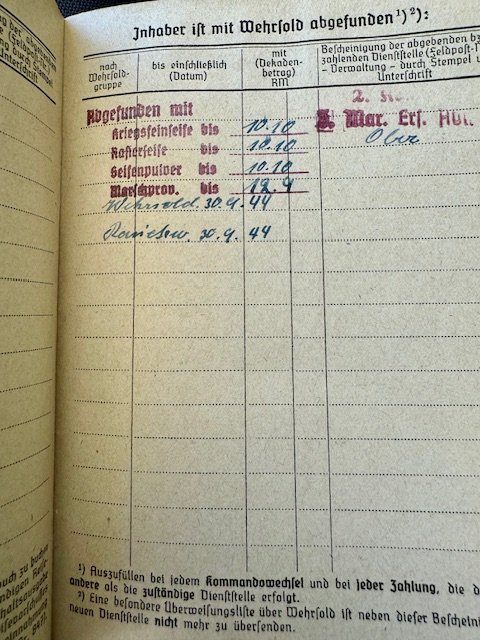 Inhaber ist mit Wehrsold abgefunden ¹) ²):
nach
Wehrsold-
gruppe
bis einschließlich
(Datum)
mit
(Dekaden-
betrag)
RM
Bescheinigung der abgebenden bz
zahlenden Dienststelle (Feldpost-
- Verwaltung - durch Stempel u
Unterschrift
Abgefunden mit
Kriegsfeinseife bis 10.10
Rasierseife bis 10.10
Seifenpulver bis 10.10
Marschprov. bis 12.9
Wehrsold. 30.9. 44
30.9. 44
2.
Mar. Ers.
Ober
¹) Auszufüllen bei jedem Kommandowechsel und bei jeder Zahlung, die d
andere als die zuständige Dienststelle erfolgt.
²) Eine besondere Überweisungsliste über Wehrsold ist neben dieser Bescheini
neuen Dienststelle nicht mehr zu übersenden.